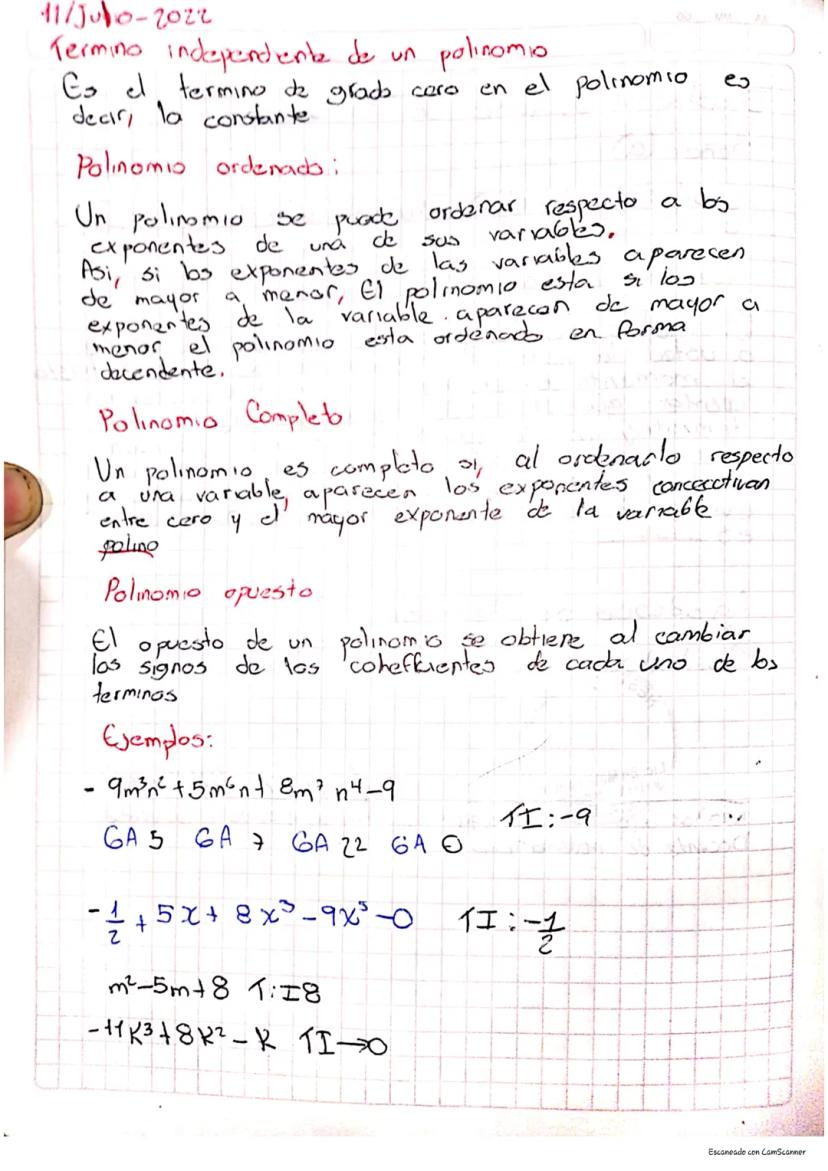 11/Julio-2022
Termino independiente de un polinomio
Es el termino de grado cero en el polinomio es
decir, la constante
Polinomio ordenado:
Un polinomio se puede ordenar respecto a los
exponentes de una de sus variables.
Asi, si los exponentes de las variables aparecen
de mayor a menor, El polinomio esta si los
exponentes de la variable. aparecen de mayor a
menor el polinomio esta ordenado en forma
decendente.
Polinomio Completo
Un polinomio es completo si, al ordenarlo respecto
a una variable, aparecen los exponentes concecctivan
entre cero y el mayor exponente de la variable
polino
Polinomio opuesto
El opuesto de un polinomio se obtiene al cambiar
los signos de los coheffuentes de cada uno de los
terminos
Ejemplos:
- 9m³n² + 5m⁶n + 8m⁷ n⁴ - 9
TI: -9
GA 5 GA 7 GA 22 GA 0
-1/2 + 5x + 8x³ - 9x⁵ - 0 TI: -1/2
m² - 5m + 8 T:I8
-11k³ + 8k² - k TI→0
Escaneado con CamScanner